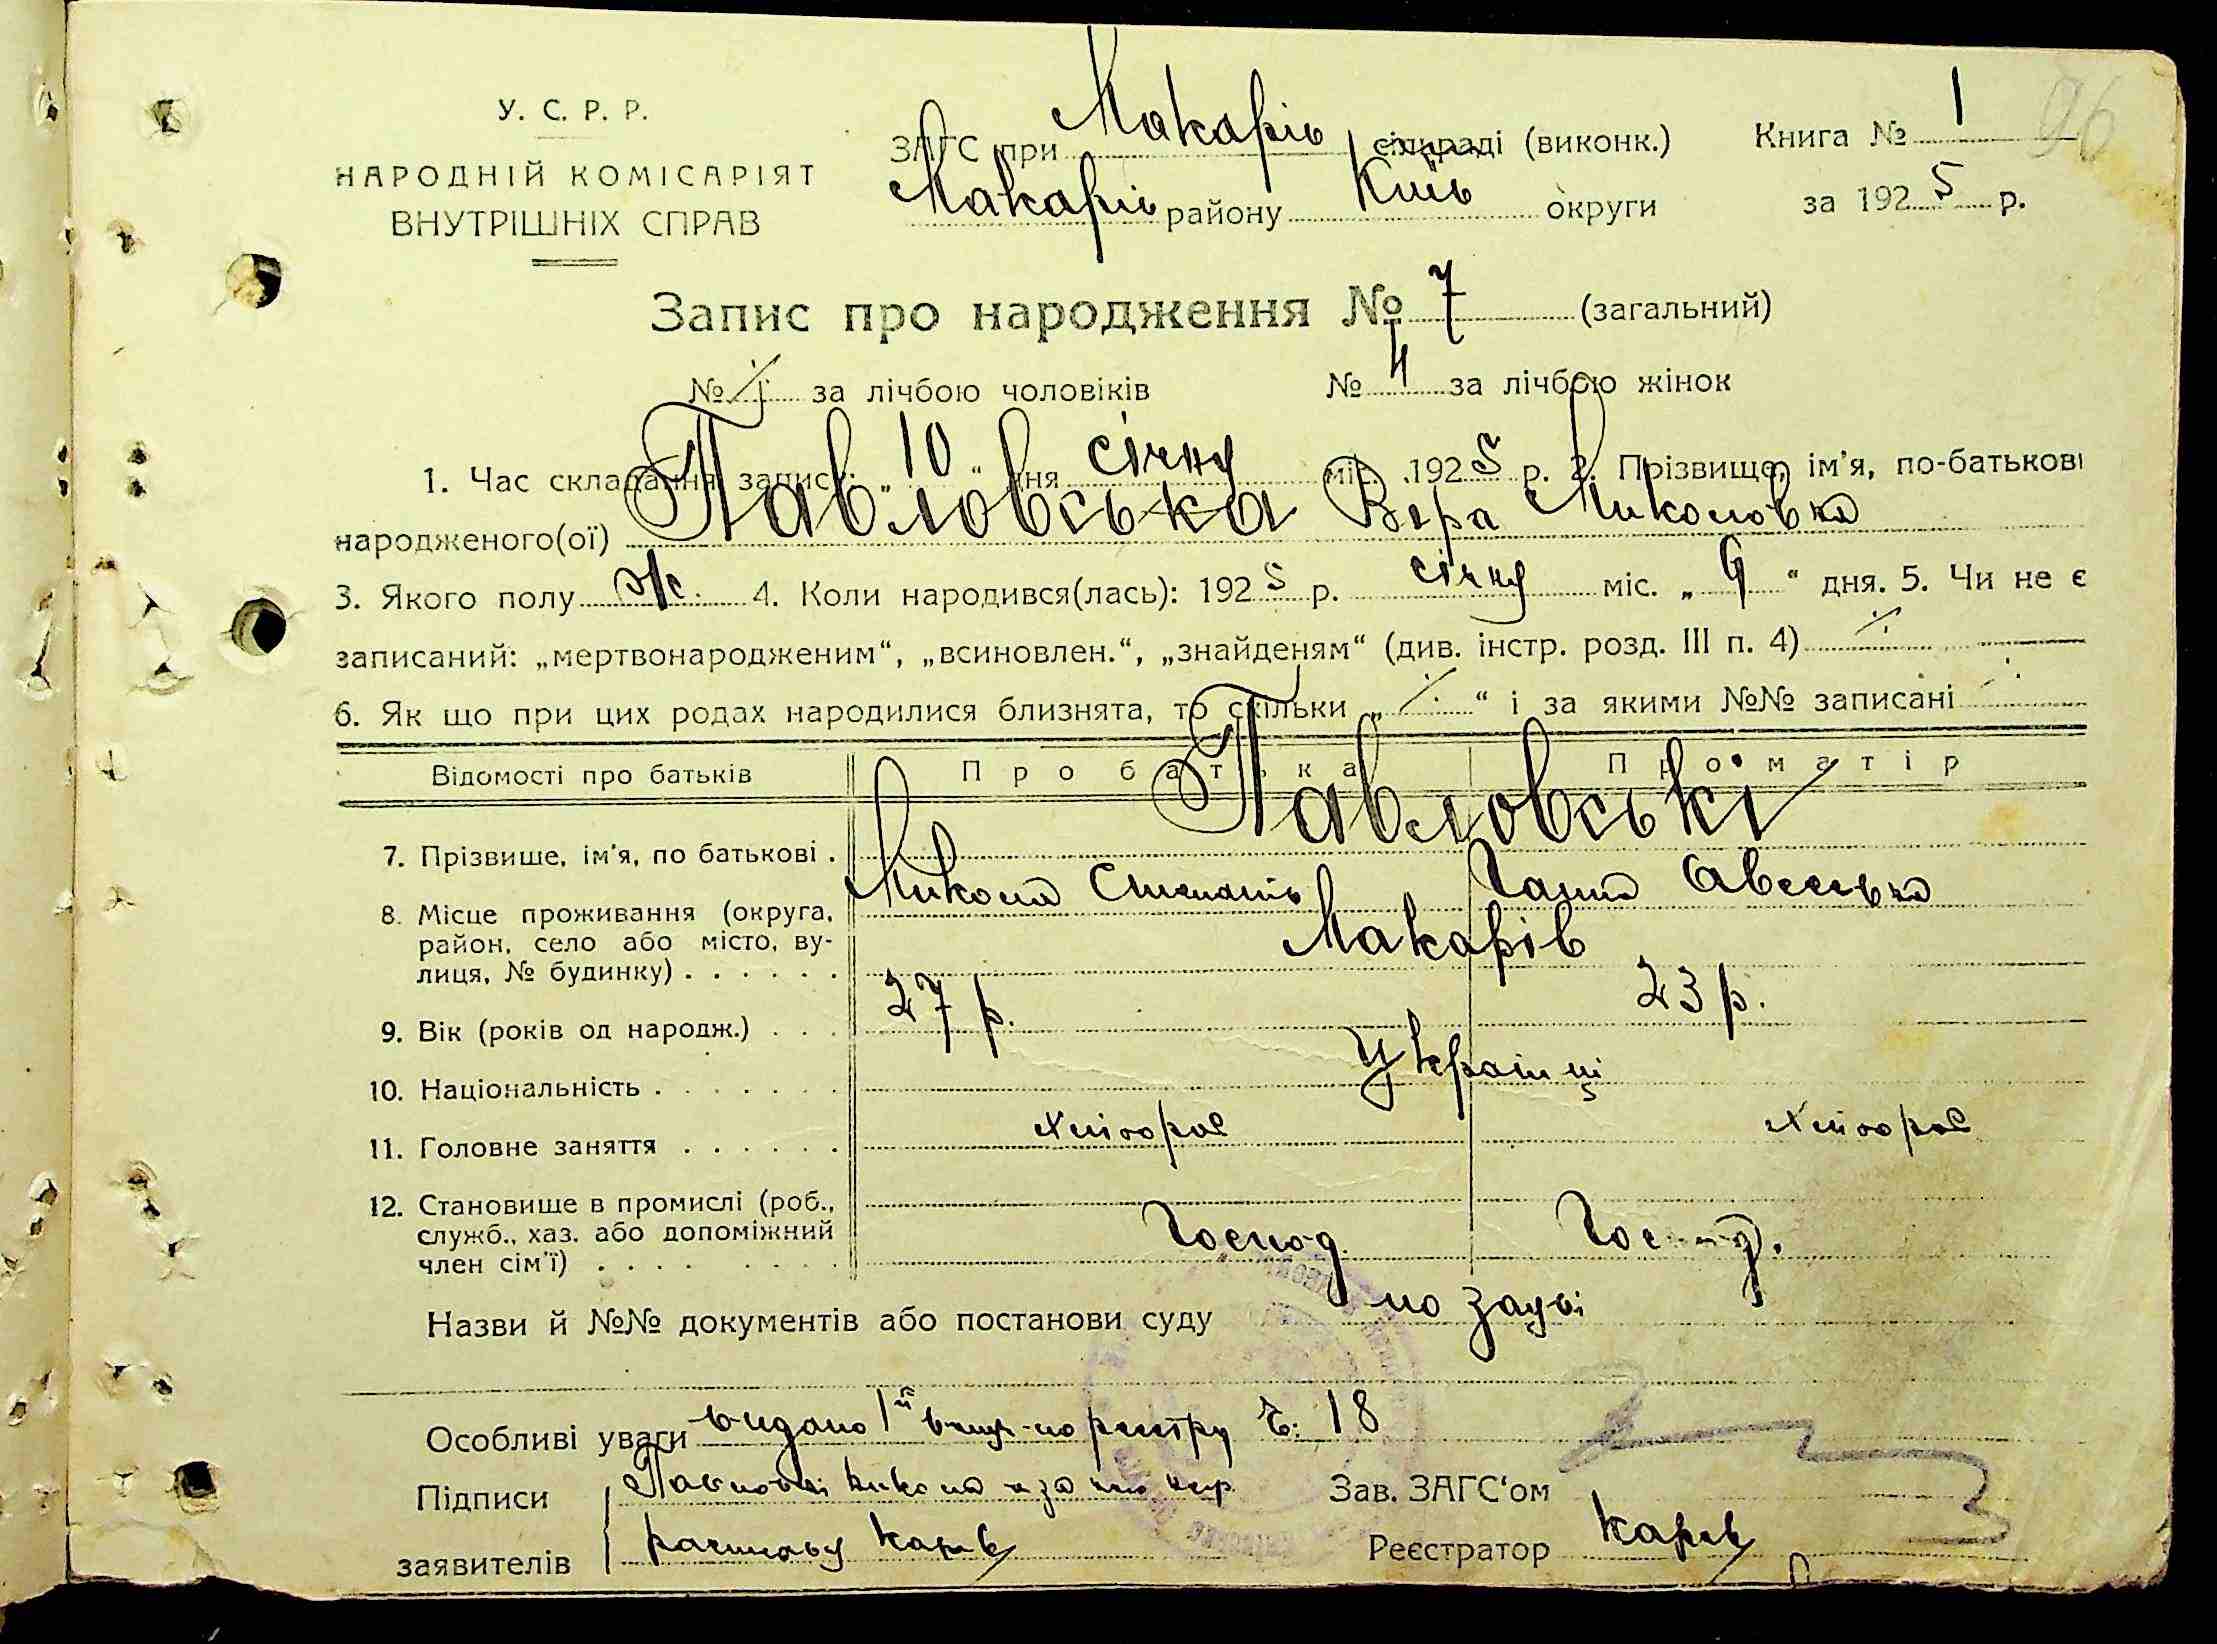 96
У. С. Р. Р.
НАРОДНІЙ КОМІСАРІЯТ
ВНУТРІШНІХ СПРАВ
ЗАГС при Макарів сільраді (виконк.) Книга № 1
Макарів району Київ округи за 1925 р.
Запис про народження № 7 (загальний)
№ за лічбою чоловіків № 4 за лічбою жінок
1. Час складання запису: „10“ дня січня міс. 1925 р. 2. Прізвище, ім'я, по-батькові
народженого(ої) Павловська Вера Миколовна
3. Якого полу ж. 4. Коли народився(лась): 1925 р. січня міс. „9“ дня. 5. Чи не є
записаний: „мертвонародженим“, „всиновлен.“, „знайденям“ (див. інстр. розд. III п. 4)
6. Як що при цих родах народилися близнята, то скільки „ “ і за якими №№ записані
Відомості про батьків Про батька Про матір
Павловські
7. Прізвище, ім'я, по батькові .
Микола Ганна
8. Місце проживання (округа, район, село або місто, вулиця, № будинку) . . . . . . Макарів
9. Вік (років од народж.) . . . 27 р. 23 р.
10. Національність . . . . . . . Українці
11. Головне заняття . . . . . . хлібороб хлібороб
12. Становище в промислі (роб., служб., хаз. або допоміжний член сім'ї) . . . . . . . . Господ. Господ.
Назви й №№ документів або постанови суду по заяві
Особливі уваги видано 1й по реєстру 18
Підписи
Зав. ЗАГС'ом
заявителів
Реєстратор